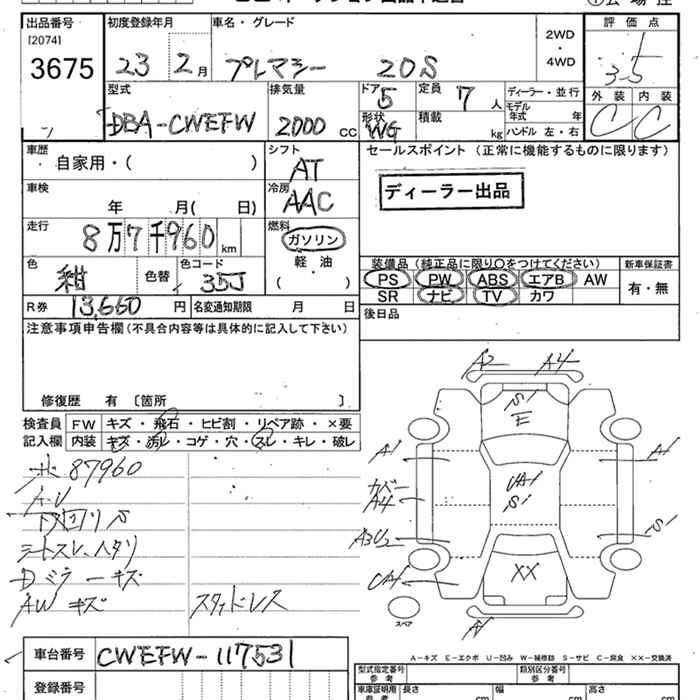 出品番号
[2074]
3675
初度登録年月
23 2月
車名・グレード
プレマシー 20S
2WD
・
4WD
評価点
3.5
外装 内装
C C
型式
DBA-CWEFW
排気量
2000 cc
ドア 5
形状 WG
定員 7 人
積載 kg
ディーラー・並行
モデル年式 年
ハンドル 左・右
車歴
自家用・( )
シフト
AT
車検
年 月( 日)
冷房
AAC
走行
8万7千960 km
燃料
ガソリン
軽・油
( )
色
紺
色替
色コード
35J
R券 13,660 円
名変通知期限 月 日
セールスポイント (正常に機能するものに限ります)
ディーラー出品
装備品 (純正品に限り○をつけてください)
PS PW ABS エアB AW
SR ナビ TV カワ
新車保証書
有・無
後日品
注意事項申告欄 (不具合内容等は具体的に記入して下さい)
修復歴 有 〔箇所 〕
検査員記入欄
FW キズ・飛石・ヒビ割・リペア跡・×要
内装 キズ・汚レ・コゲ・穴・スレ・キレ・破レ
87960
下回りS
シートスレ、ヘタリ
Dミラーキズ
AWキズ
スタッドレス
A2 A4
S1
E
A1 A1
UA1
S1
カバー
A4
A3U2
S1
XX
スペア
A－キズ E－エクボ U－凹み W－補修跡 S－サビ C－腐食 ××－交換済
車台番号 CWEFW-117531
登録番号
型式指定番号
参考
類別区分番号
参考
車庫証明用
参考
長さ cm
幅 cm
高さ cm